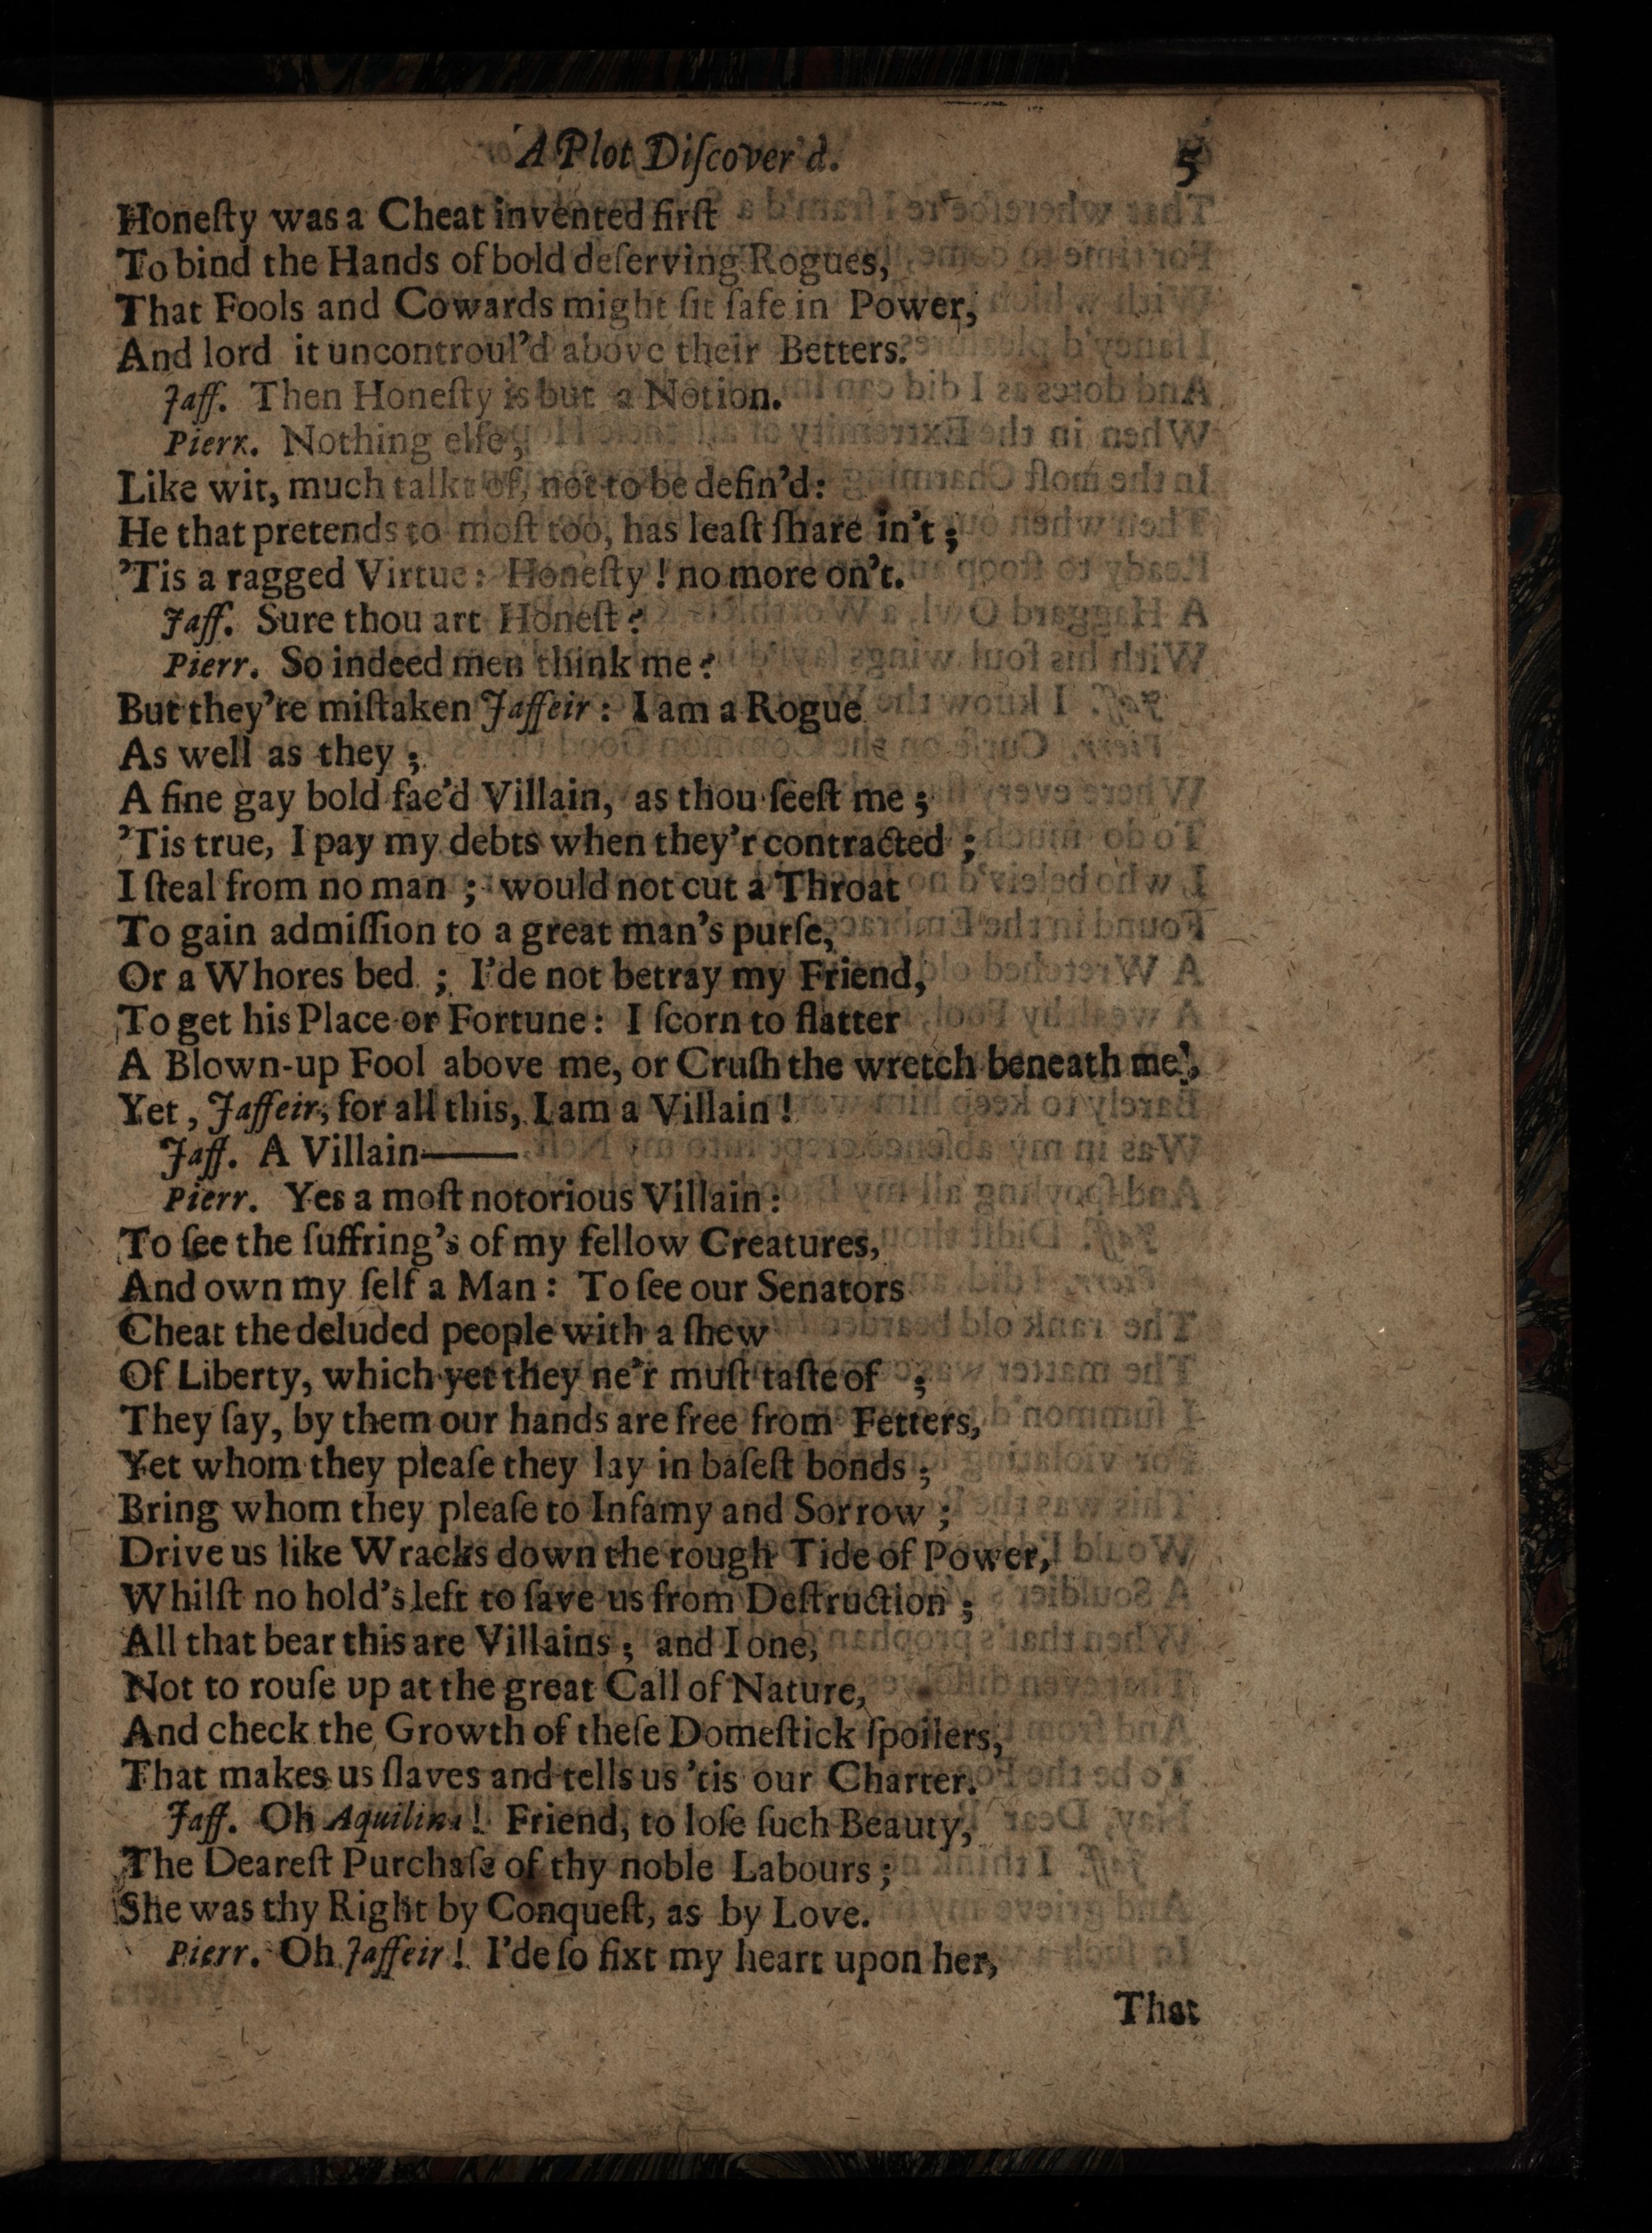 A Plot Diſcover'd. 5
Honeſty was a Cheat invented firſt
To bind the Hands of bold deſerving Rogues,
That Fools and Cowards might ſit ſafe in Power,
And lord it uncontroul'd above their Betters.
Jaff. Then Honeſty is but a Notion.
Pierr. Nothing elſe,
Like wit, much talkt of, not to be defin'd:
He that pretends to moſt too, has leaſt ſhare in't;
'Tis a ragged Virtue: Honeſty! no more on't.
Jaff. Sure thou art Honeſt?
Pierr. So indeed men think me?
But they're miſtaken Jaffeir: I am a Rogue
As well as they;
A fine gay bold fac'd Villain, as thou ſeeſt me;
'Tis true, I pay my debts when they'r contracted;
I ſteal from no man; would not cut a Throat
To gain admiſſion to a great man's purſe,
Or a Whores bed; I'de not betray my Friend,
To get his Place or Fortune: I ſcorn to flatter
A Blown-up Fool above me, or Cruſh the wretch beneath me,
Yet, Jaffeir, for all this, I am a Villain!
Jaff. A Villain——
Pierr. Yes a moſt notorious Villain:
To ſee the ſuffring's of my fellow Creatures,
And own my ſelf a Man: To ſee our Senators
Cheat the deluded people with a ſhew
Of Liberty, which yet they ne'r muſt taſte of;
They ſay, by them our hands are free from Fetters,
Yet whom they pleaſe they lay in baſeſt bonds;
Bring whom they pleaſe to Infamy and Sorrow;
Drive us like Wracks down the rough Tide of Power,
Whilſt no hold's left to ſave us from Deſtruction;
All that bear this are Villains; and I one,
Not to rouſe up at the great Call of Nature,
And check the Growth of theſe Domeſtick ſpoilers,
That makes us ſlaves and tells us 'tis our Charter.
Jaff. Oh Aquilina! Friend, to loſe ſuch Beauty,
The Deareſt Purchaſe of thy noble Labours;
She was thy Right by Conqueſt, as by Love.
Pierr. Oh Jaffeir! I'de ſo fixt my heart upon her,
That